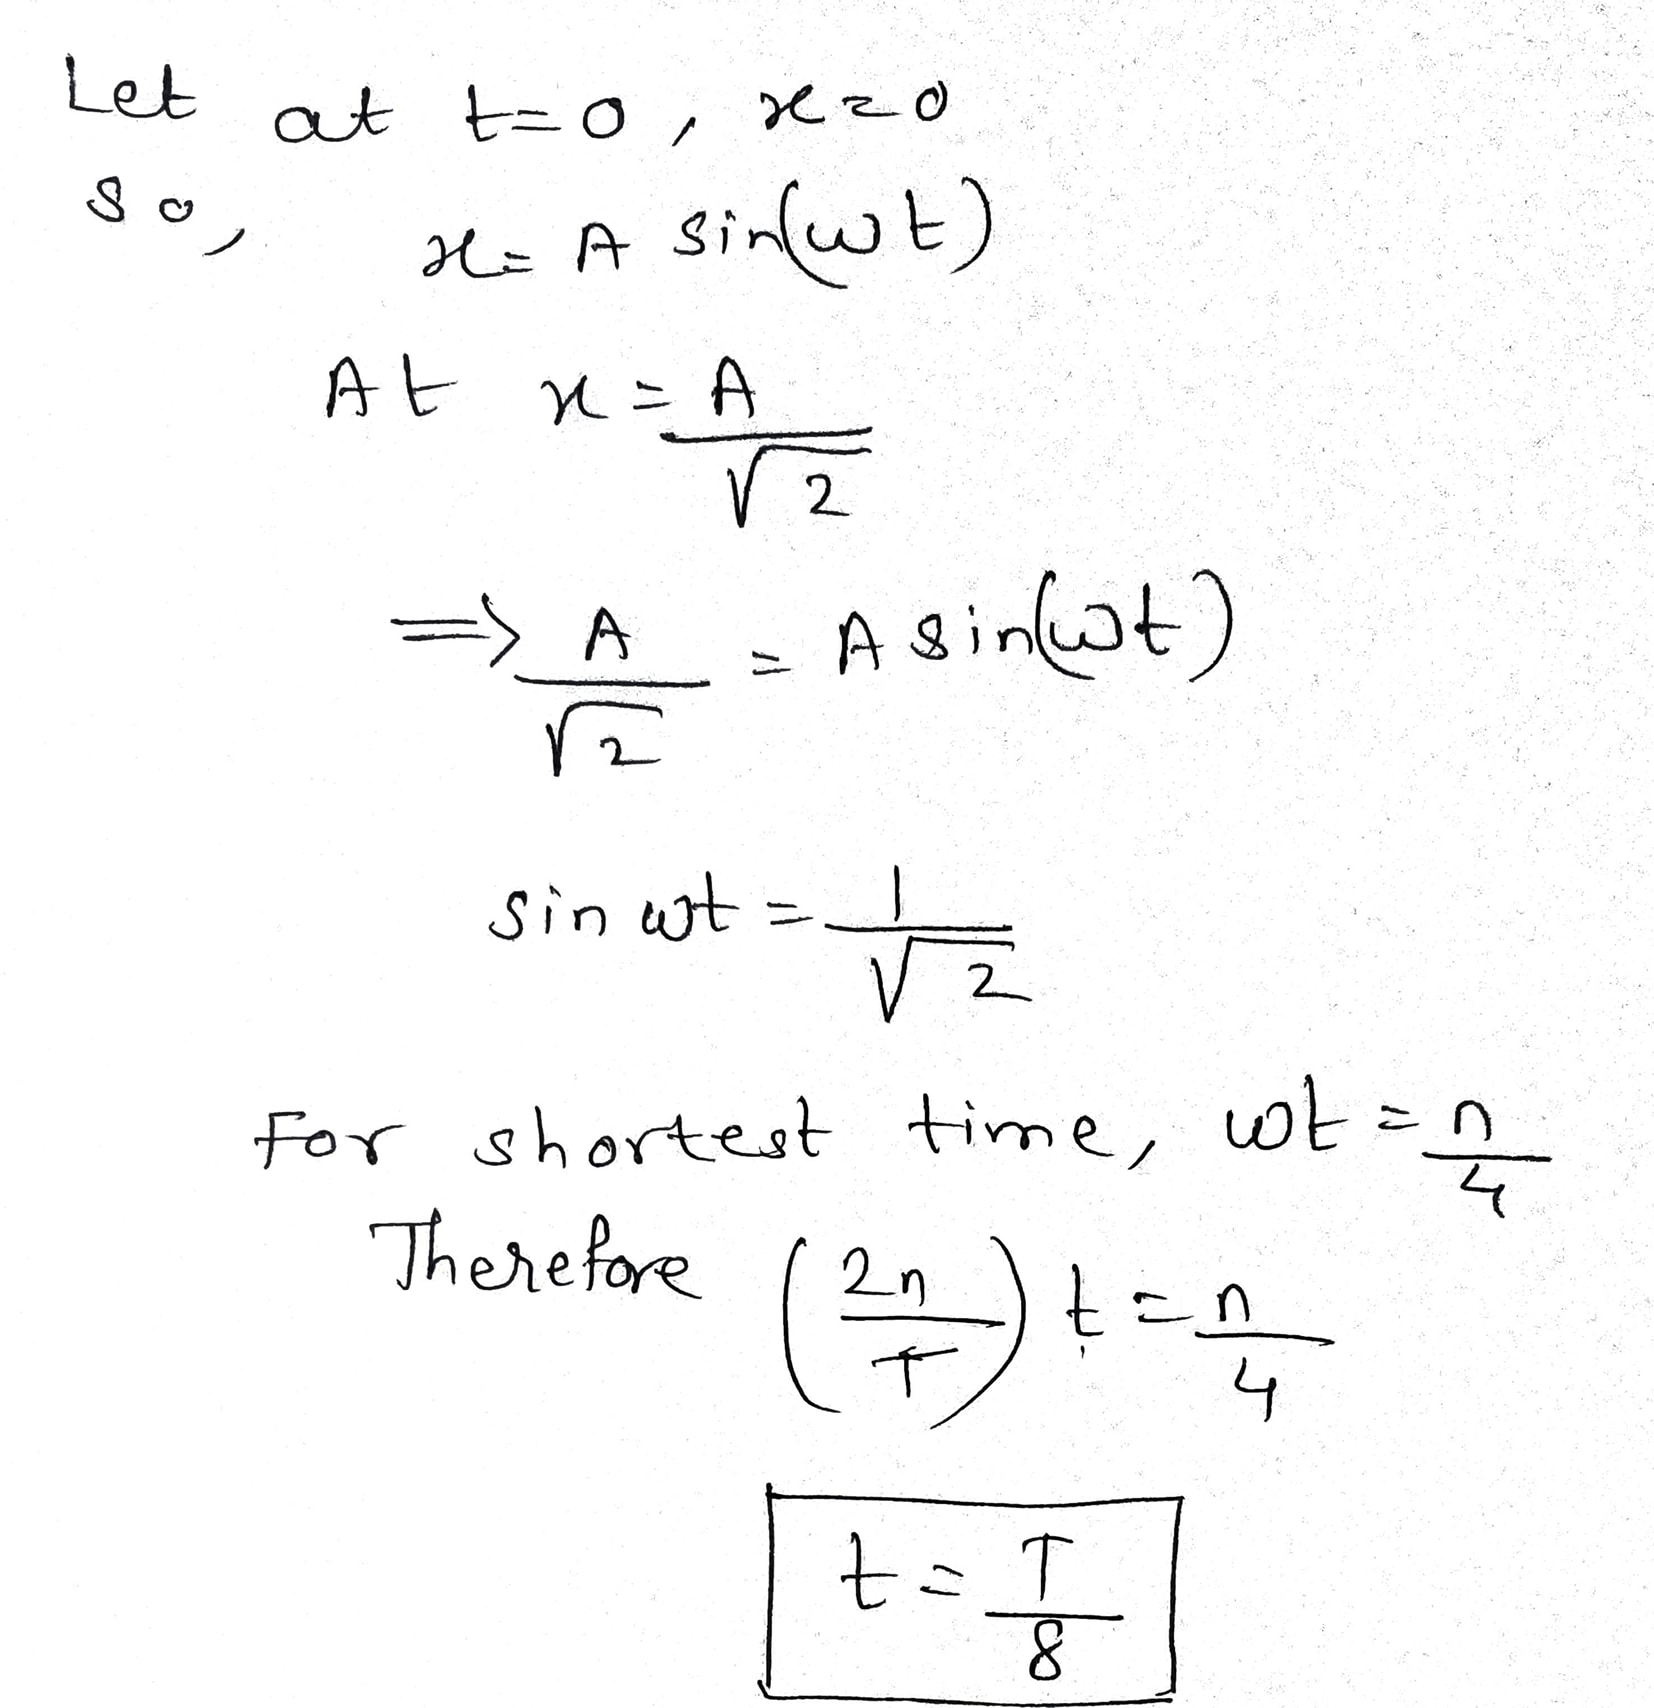 Let at t=0, x=0
So, x= A sin(ωt)
At x = A/√2
⇒ A/√2 = A sin(ωt)
sin ωt = 1/√2
For shortest time, ωt = π/4
Therefore (2π/T) t = π/4
t = T/8